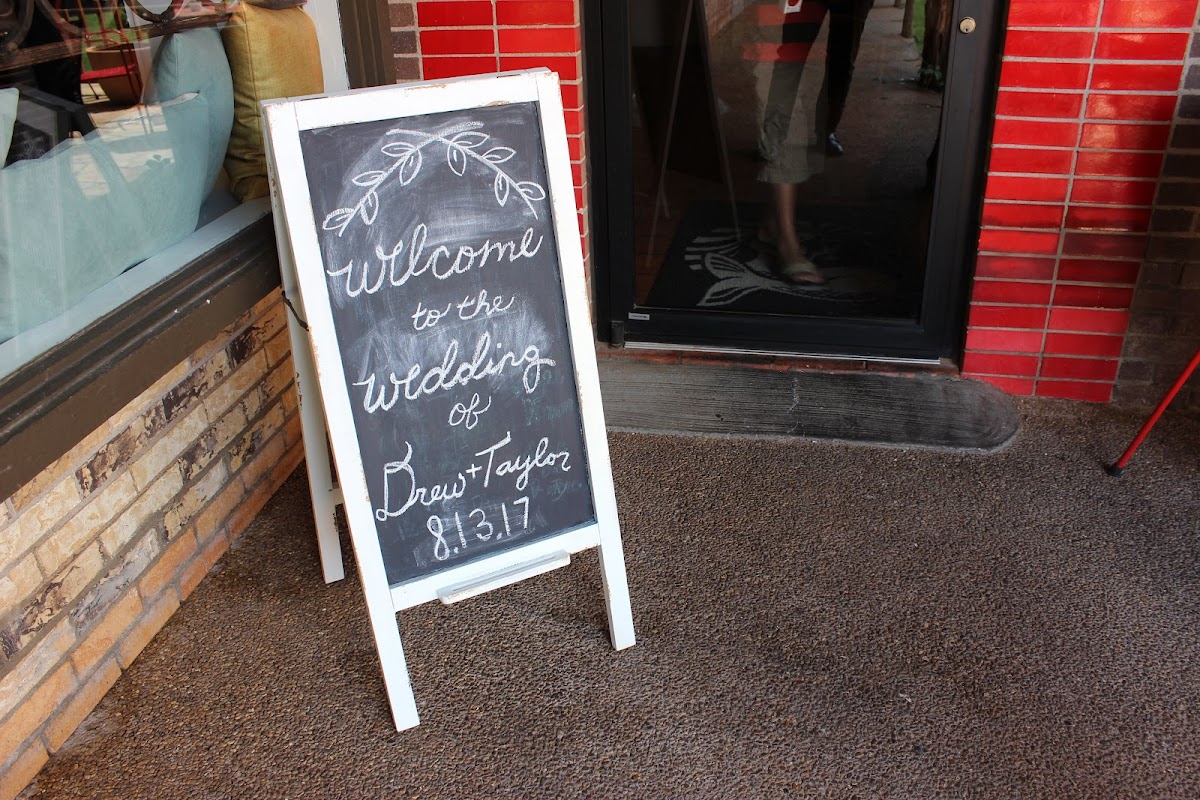 Welcome
to the
wedding
of
Drew + Taylor
8.13.17